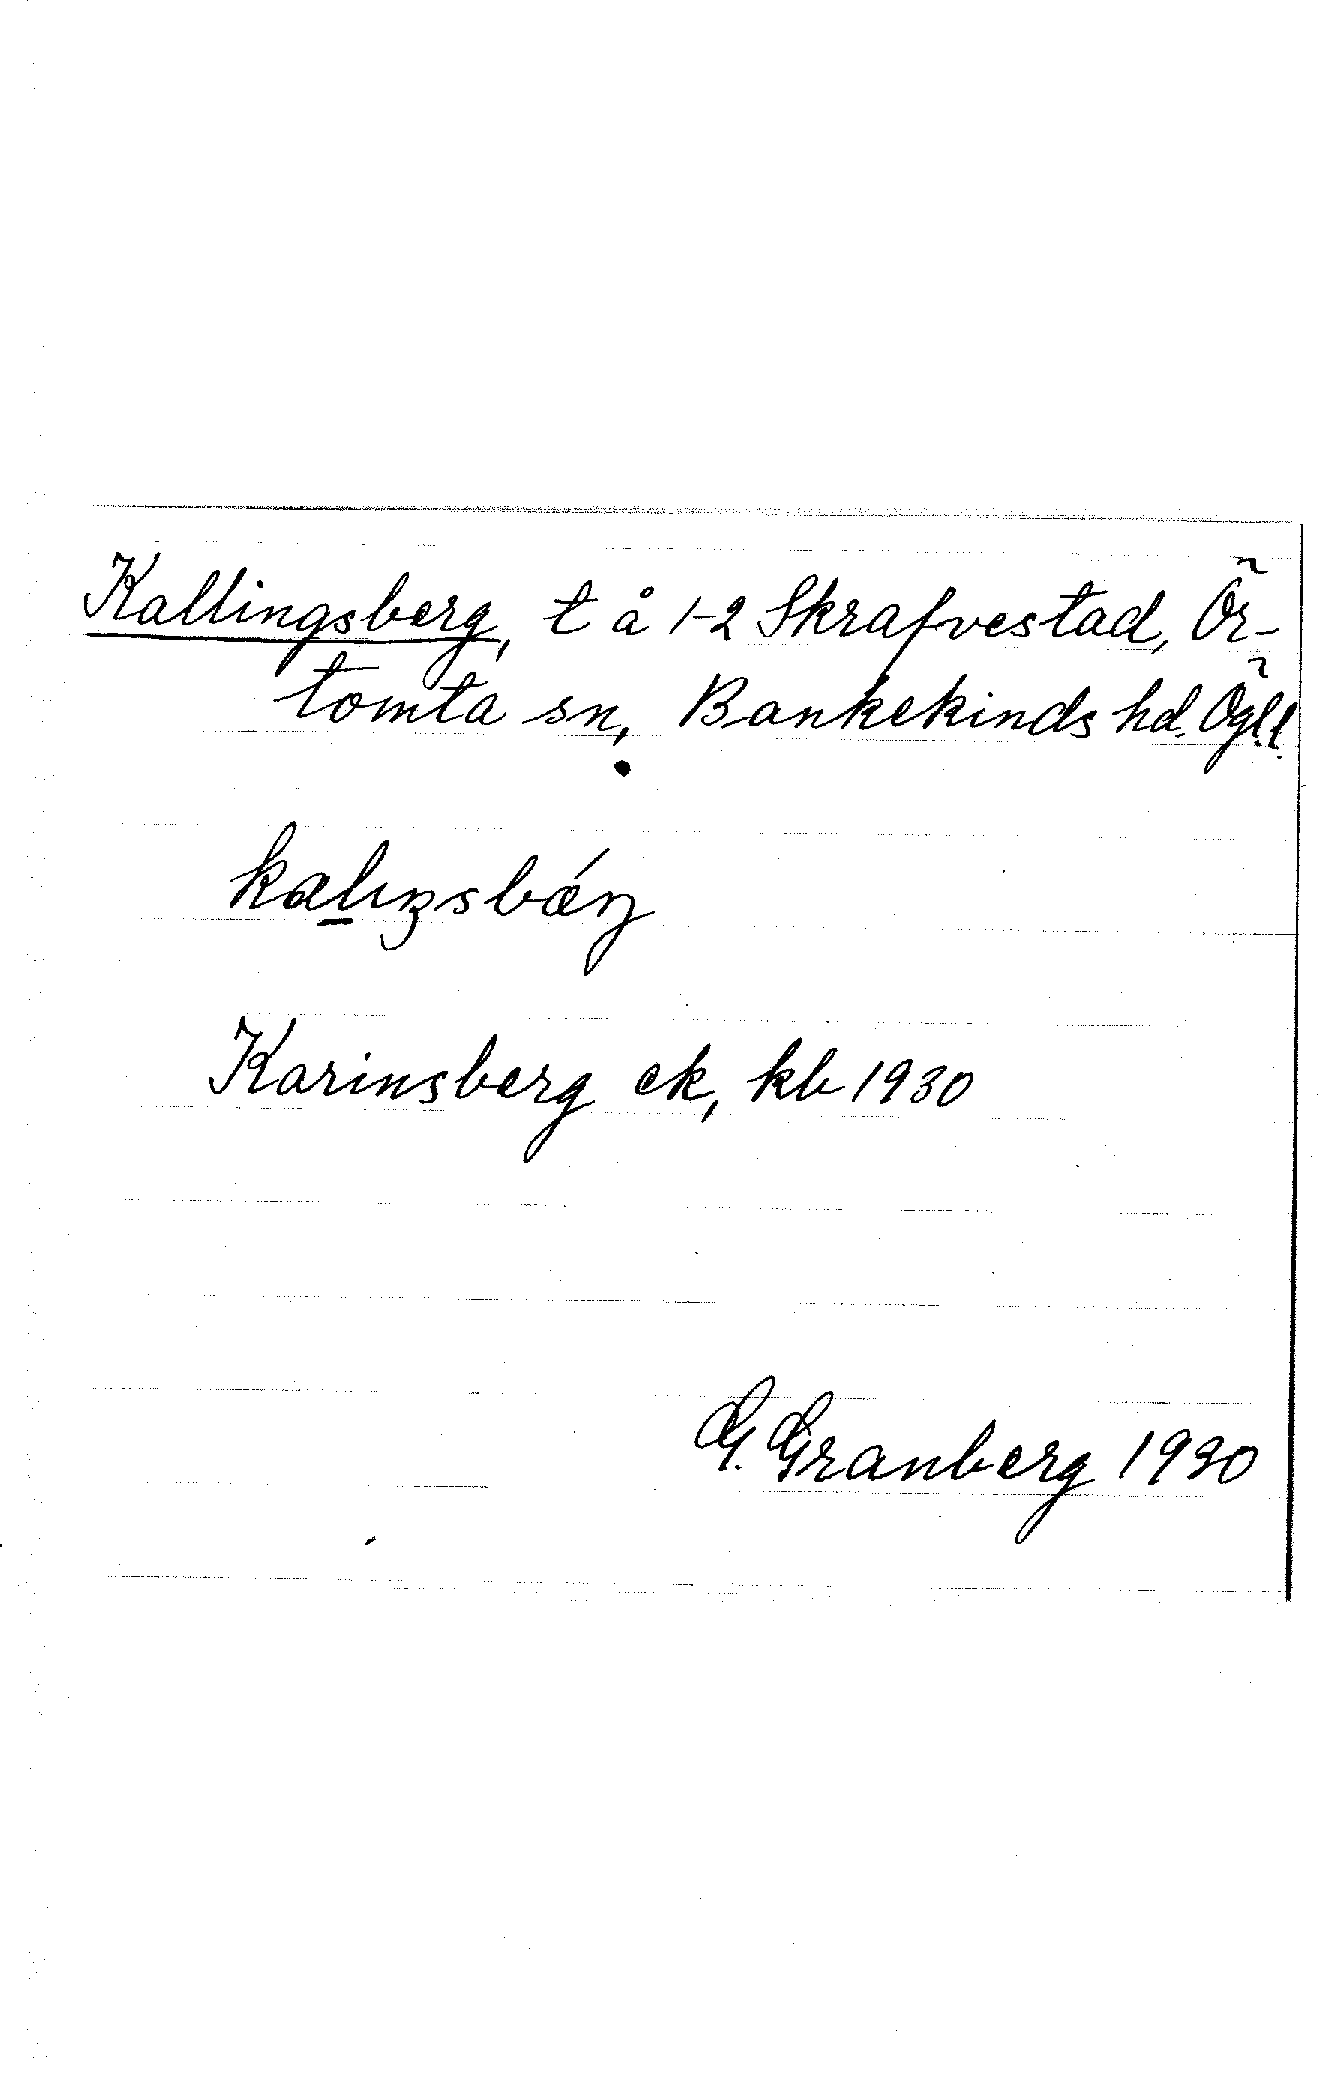 Kallingsberg, t å 1-2 Skrafvestad, Ör-
tomta sn, Bankekinds hd. Ögl.
Karinsberg ek, kb 1930
G. Granberg 1930